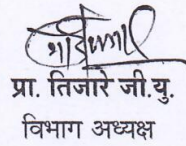 प्रा. तिजारे जी.यु.
विभाग अध्यक्ष